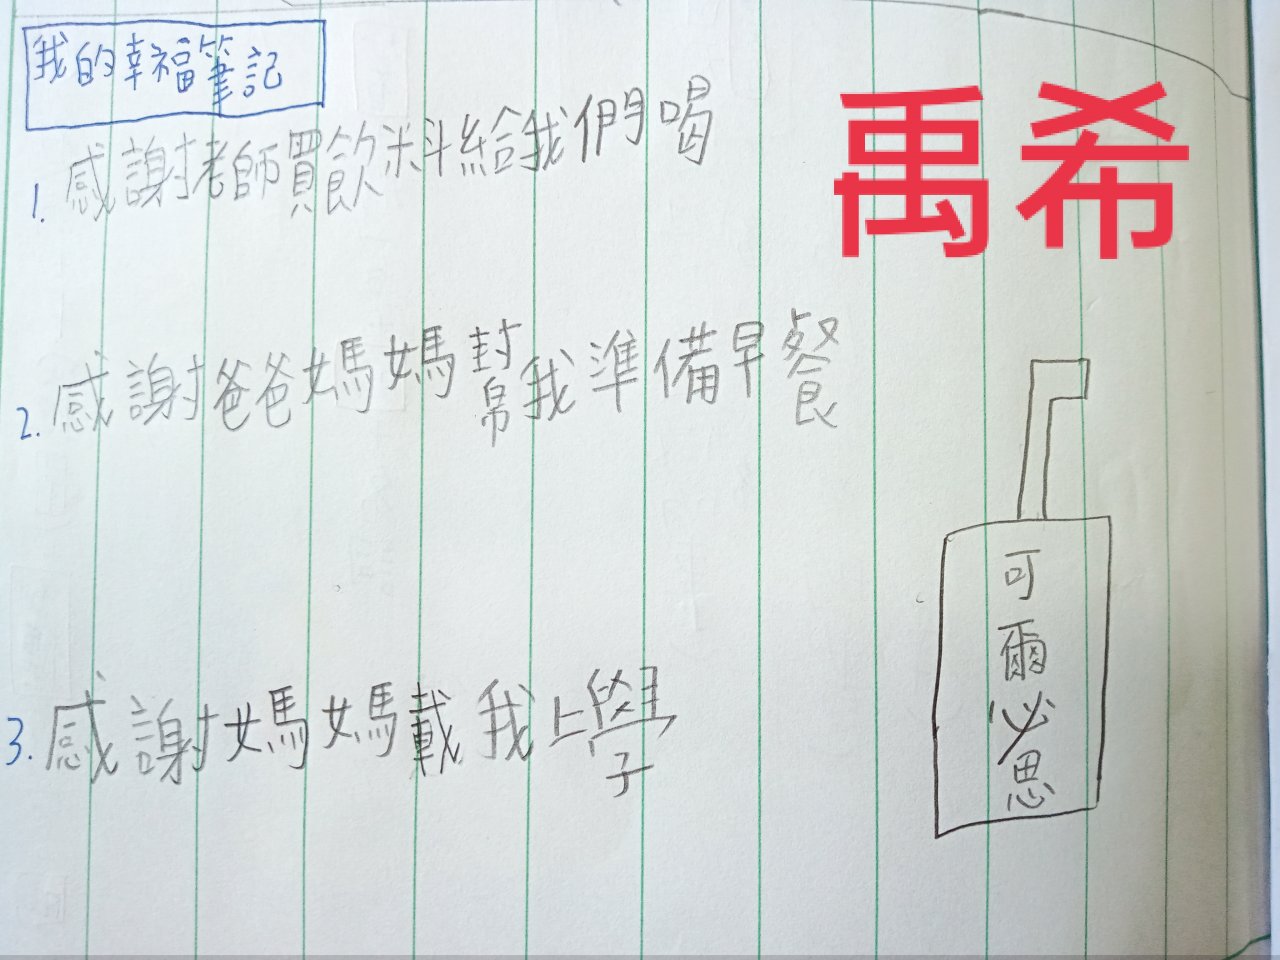 我的幸福筆記
禹希
1. 感謝老師買飲料給我們喝
2. 感謝爸爸媽媽幫我準備早餐
3. 感謝媽媽載我上學
可
爾
必
思